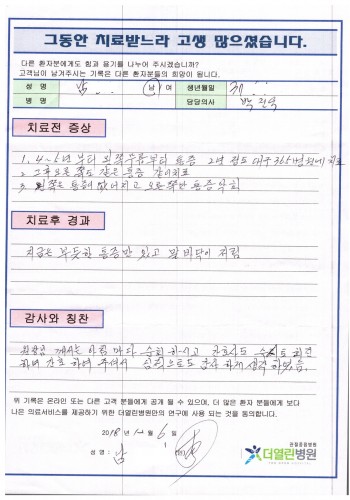 그동안 치료받느라 고생 많으셨습니다.
다른 환자분에게도 힘과 용기를 나누어 주시겠습니까?
고객님이 남겨주시는 기록은 다른 환자분들의 희망이 됩니다.
성 명 남 남 여 생년월일
병 명 담당의사 박
치료전 증상
1. 4~5년 부터 왼쪽무릎부터 통증 2년 정도 대구 365병원에서 치료
2. 그 후 오른쪽도 같은 통증
3. 왼쪽은 통증이 없어지고 오른쪽만 통증
치료후 경과
지금은 뿌듯한 통증만 있고 발바닥이 저림
감사와 칭찬
원장님 께서는 아침 마다 순회 하시고 간호사도
하며 간호 하여 주셔서 하게 생각 하였음.
위 기록은 온라인 또는 다른 고객 분들에게 공개 될 수 있으며, 더 많은 환자 분들에게 보다
나은 의료서비스를 제공하기 위한 더열린병원만의 연구에 사용 되는 것을 동의합니다.
2018년 12월 6일
성 명 : 남 (인)
관절종합병원
더열린병원